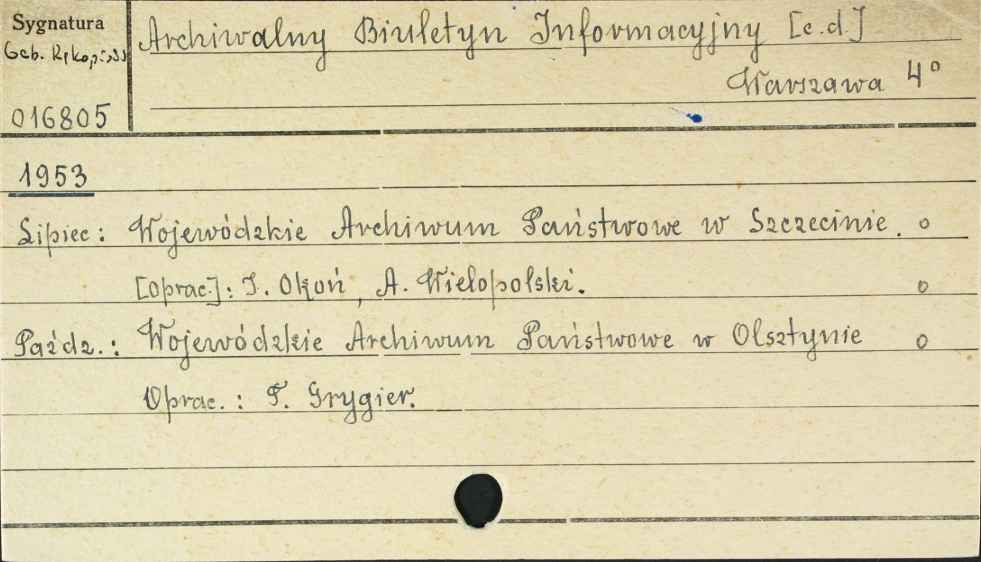 Sygnatura
Gab. Rękopisów
016805
Archiwalny Biuletyn Informacyjny [c.d]
Warszawa 4°
1953
Lipiec: Wojewódzkie Archiwum Państwowe w Szczecinie. o
[oprac.]: J. Okoń, A. Wielopolski. o
Paźdz.: Wojewódzkie Archiwum Państwowe w Olsztynie o
Oprac.: T. Grygier.